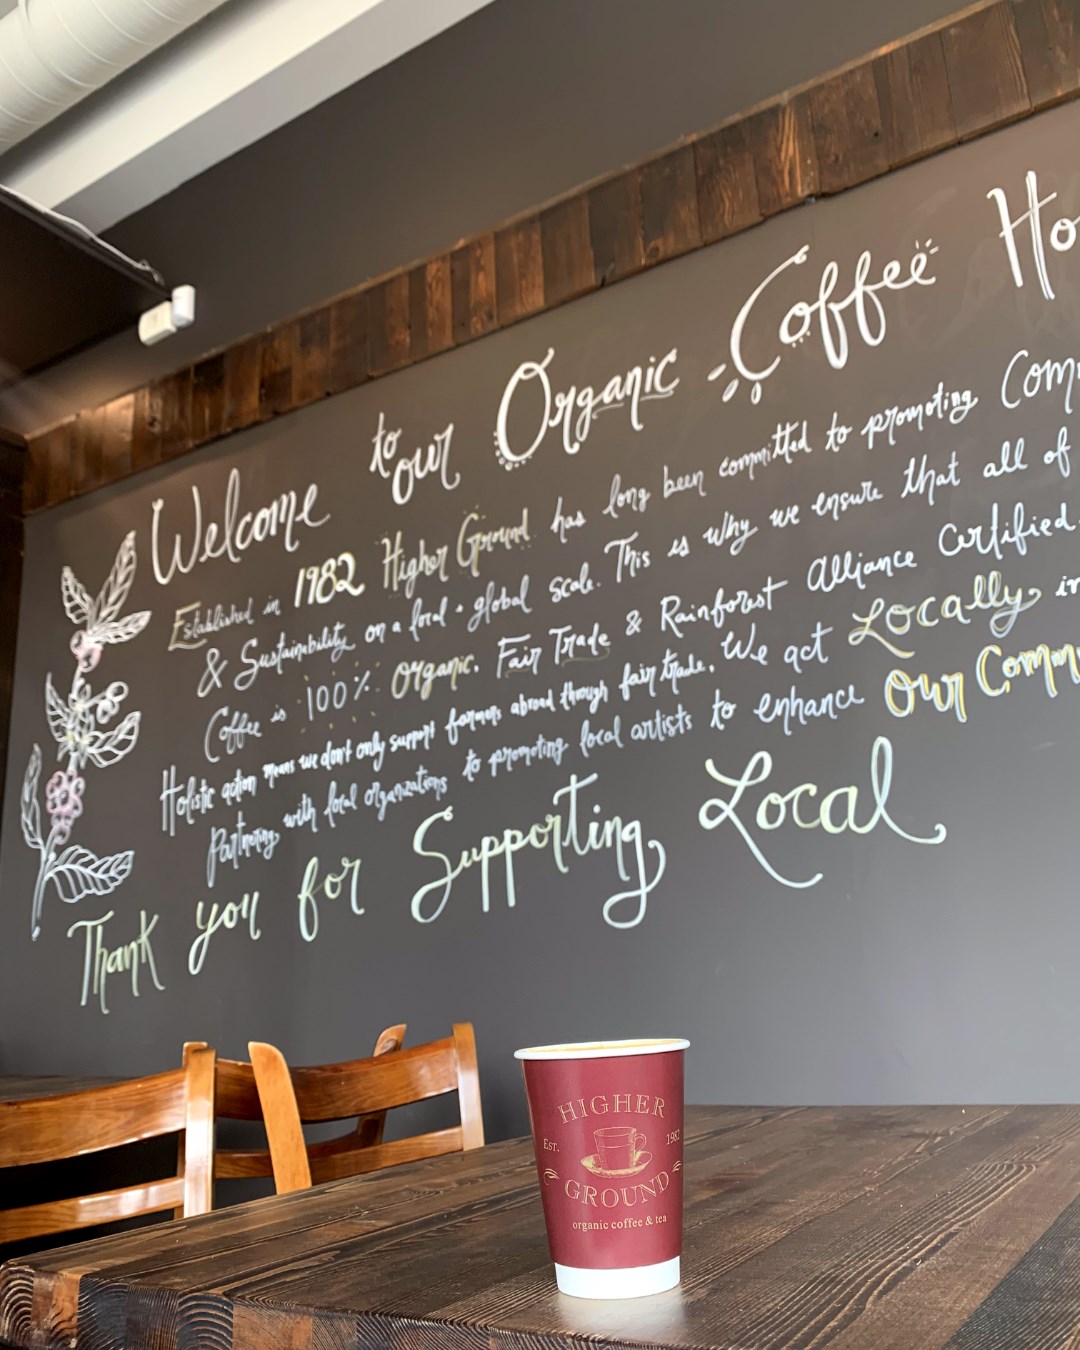 Welcome to our Organic Coffee Ho
Established in 1982 Higher Ground has long been committed to promoting Com
& Sustainability on a local + global scale. This is why we ensure that all of
Coffee is 100% organic. Fair Trade & Rainforest Alliance Certified.
Holistic action means we don't only support farmers abroad through fair trade. We act Locally in
Partnering with local organizations to promoting local artists to enhance Our Comm
Thank you for Supporting Local
HIGHER
EST. 1982
GROUND
organic coffee & tea